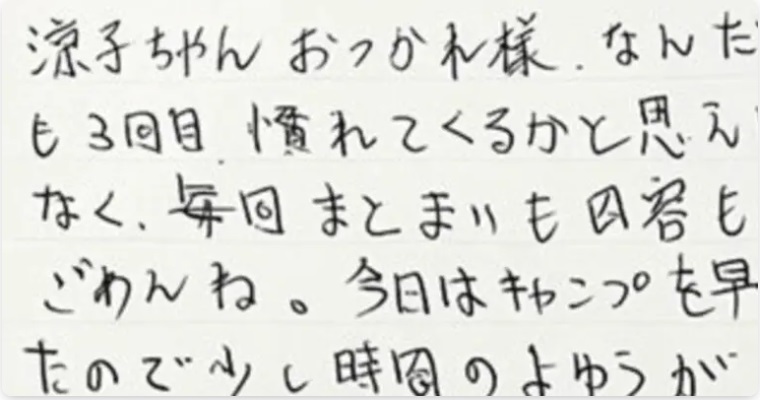 涼子ちゃん おつかれ様. なんだ
も3回目. 慣れてくるかと思え
なく、毎回 まとまりも内容も
ごめんね。今日はキャンプを早
たので少し時間のよゆうが